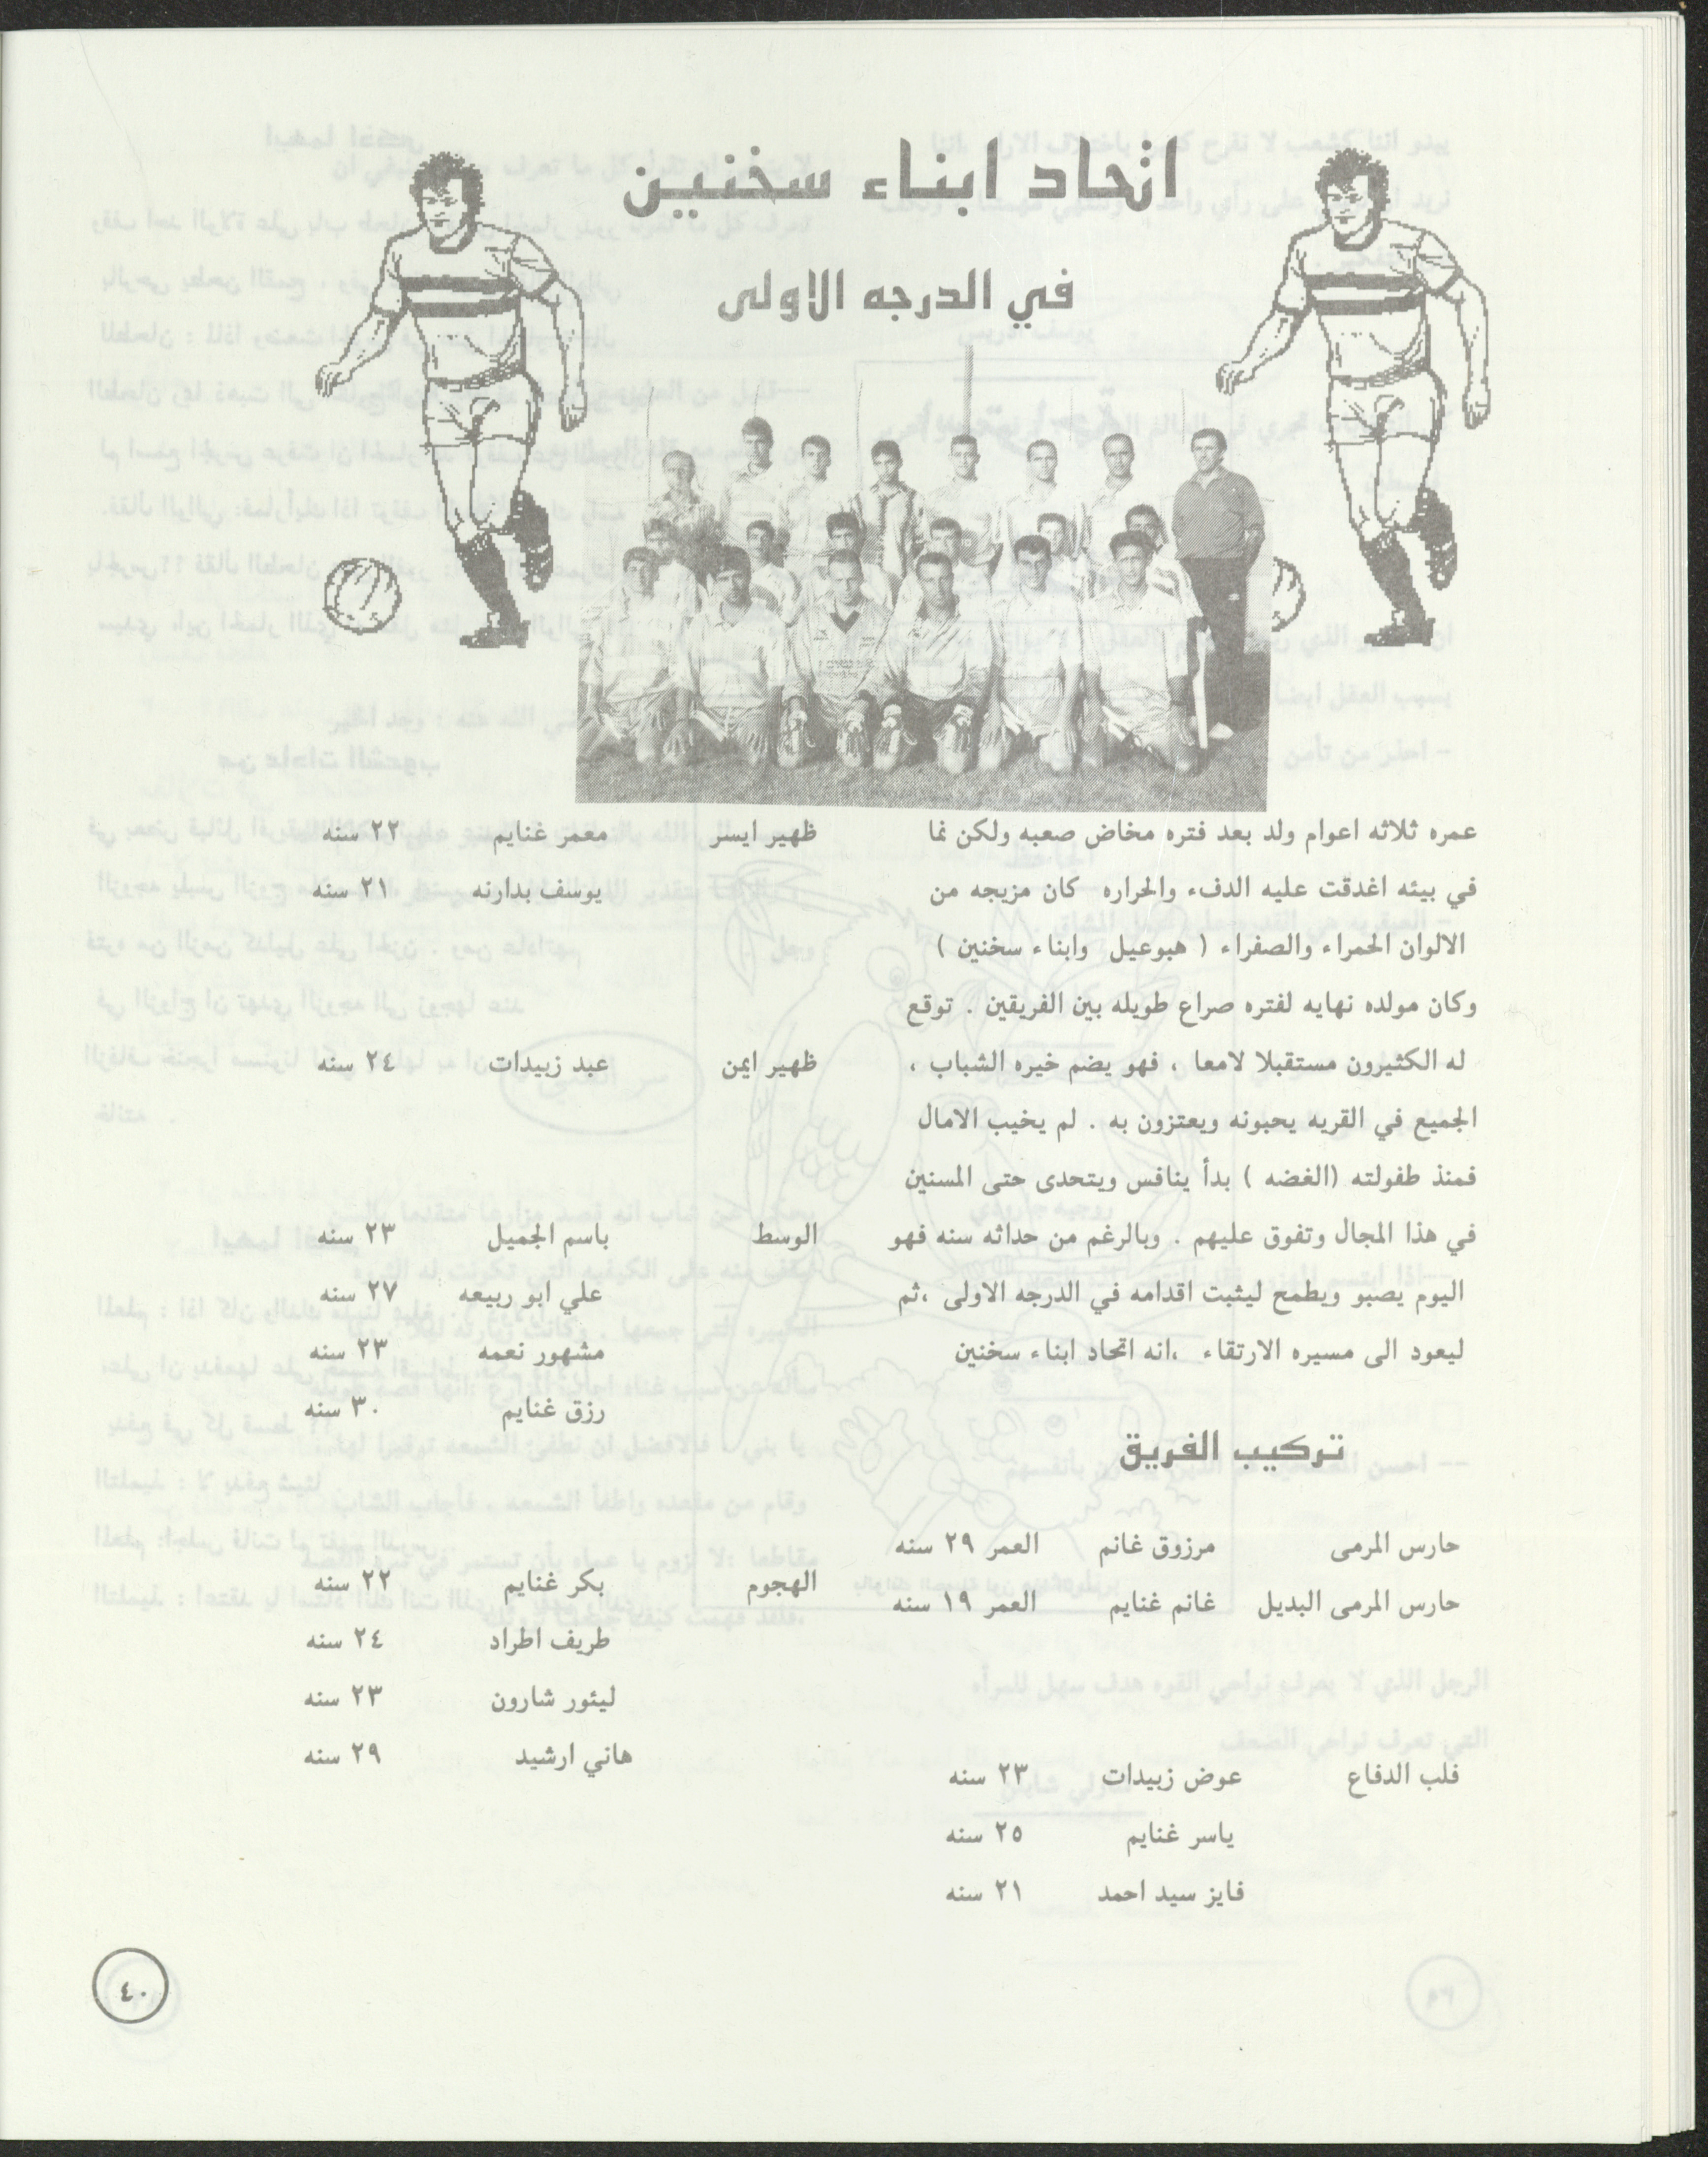 اتحاد ابناء سخنين
في الدرجه الاولى
عمره ثلاثه اعوام ولد بعد فتره مخاض صعبه ولكن نما
في بيئه اغدقت عليه الدفء والحراره كان مزيجه من
الالوان الحمراء والصفراء ( هبوعيل وابناء سخنين )
وكان مولده نهايه لفتره صراع طويله بين الفريقين . توقع
له الكثيرون مستقبلا لامعا ، فهو يضم خيره الشباب ،
الجميع في القريه يحبونه ويعتزون به . لم يخيب الامال
فمنذ طفولته (الغضه ) بدأ ينافس ويتحدى حتى المسنين
في هذا المجال وتفوق عليهم . وبالرغم من حداثه سنه فهو
اليوم يصبو ويطمح ليثبت اقدامه في الدرجه الاولى ،ثم
ليعود الى مسيره الارتقاء ،انه اتحاد ابناء سخنين
تركيب الفريق
حارس المرمى مرزوق غانم العمر ٢٩ سنه
حارس المرمى البديل غانم غنايم العمر ١٩ سنه
فلب الدفاع عوض زبيدات ٢٣ سنه
ياسر غنايم ٢٥ سنه
فايز سيد احمد ٢١ سنه
ظهير ايسر معمر غنايم ٢٢ سنه
يوسف بدارنه ٢١ سنه
ظهير ايمن عبد زبيدات ٢٤ سنه
الوسط باسم الجميل ٢٣ سنه
علي ابو ربيعه ٢٧ سنه
مشهور نعمه ٢٣ سنه
رزق غنايم ٣٠ سنه
الهجوم بكر غنايم ٢٢ سنه
طريف اطراد ٢٤ سنه
ليئور شارون ٢٣ سنه
هاني ارشيد ٢٩ سنه
٤٠